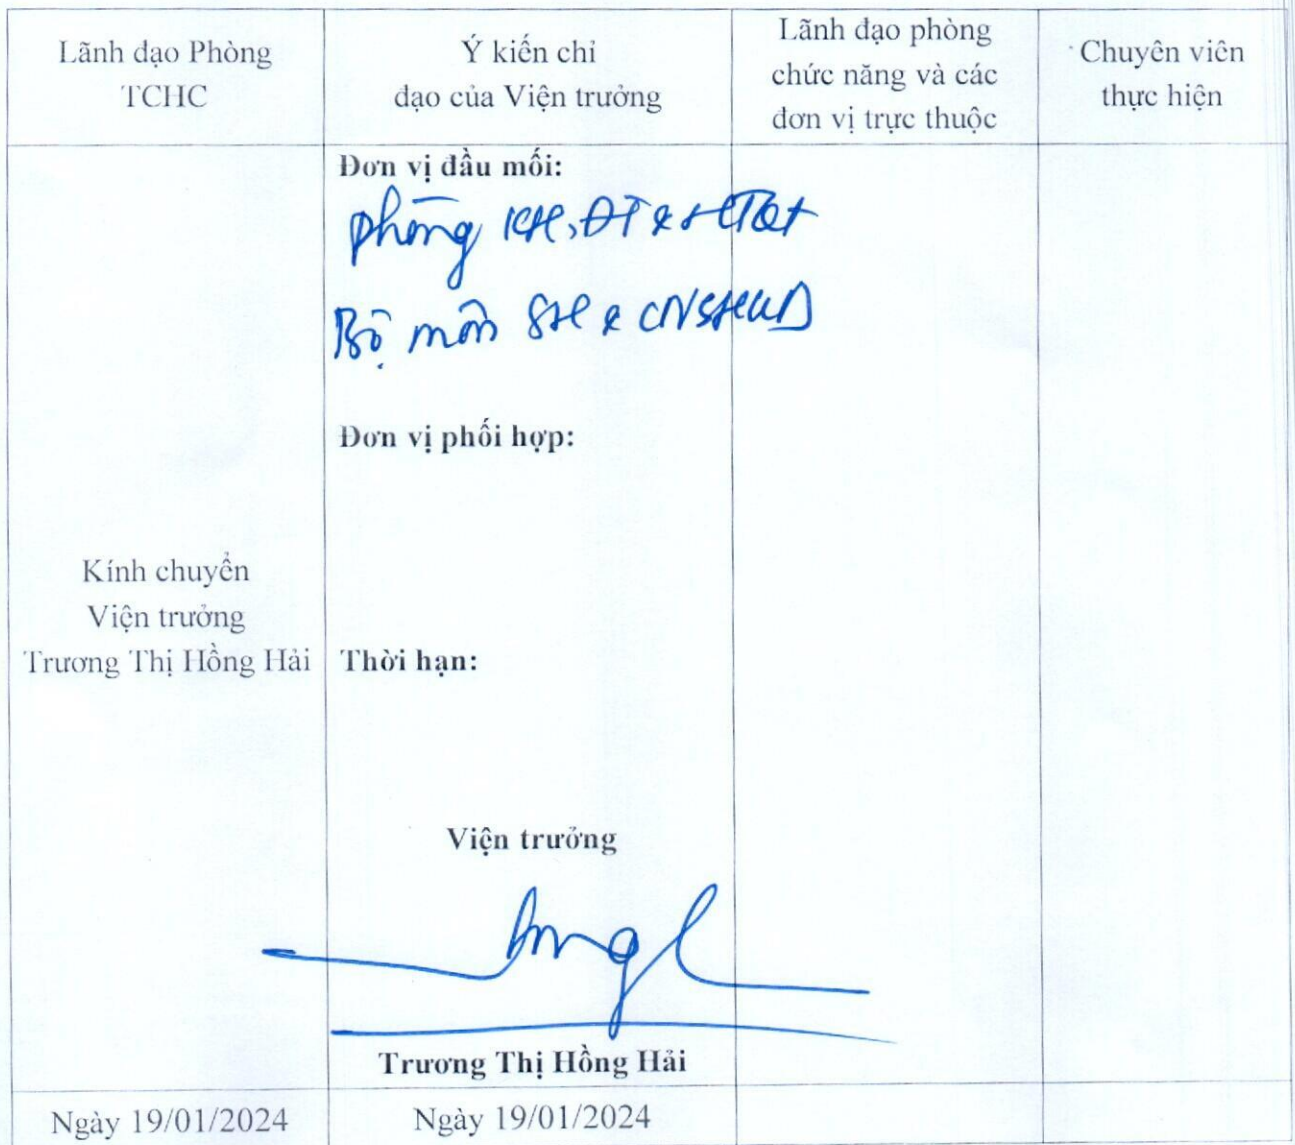 Lãnh đạo Phòng
TCHC
Ý kiến chỉ
đạo của Viện trưởng
Lãnh đạo phòng
chức năng và các
đơn vị trực thuộc
Chuyên viên
thực hiện
Kính chuyển
Viện trưởng
Trương Thị Hồng Hải
Đơn vị đầu mối:
Phòng KH, ĐT & HTQT
Bộ môn SH & CNSHUD
Đơn vị phối hợp:
Thời hạn:
Viện trưởng
Trương Thị Hồng Hải
Ngày 19/01/2024
Ngày 19/01/2024